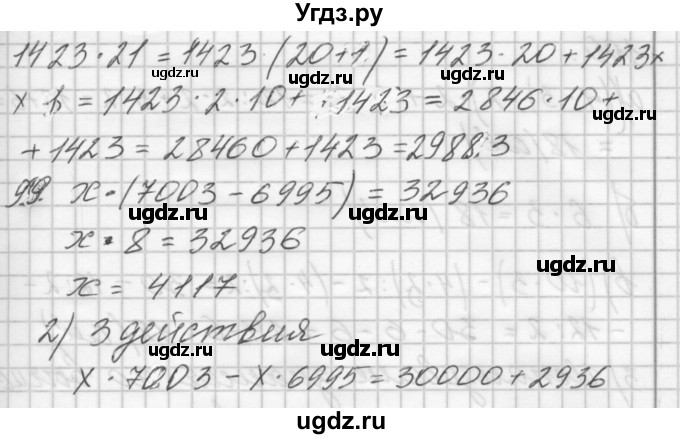 Угдз.ру
1423·21 = 1423·(20+1) = 1423·20 + 1423×
× 1 = 1423·2·10 + 1423 = 2846·10 +
+ 1423 = 28460 + 1423 = 29883
99. x·(7003 - 6995) = 32936
x·8 = 32936
x = 4117
2) 3 действия
x·7003 - x·6995 = 30000 + 2936
ugdz.ru
ugdz.ru
ugdz.ru
ugdz.ru
ugdz.ru
ugdz.ru
ugdz.ru
ugdz.ru
ugdz.ru
ugdz.ru
ugdz.ru
ugdz.ru